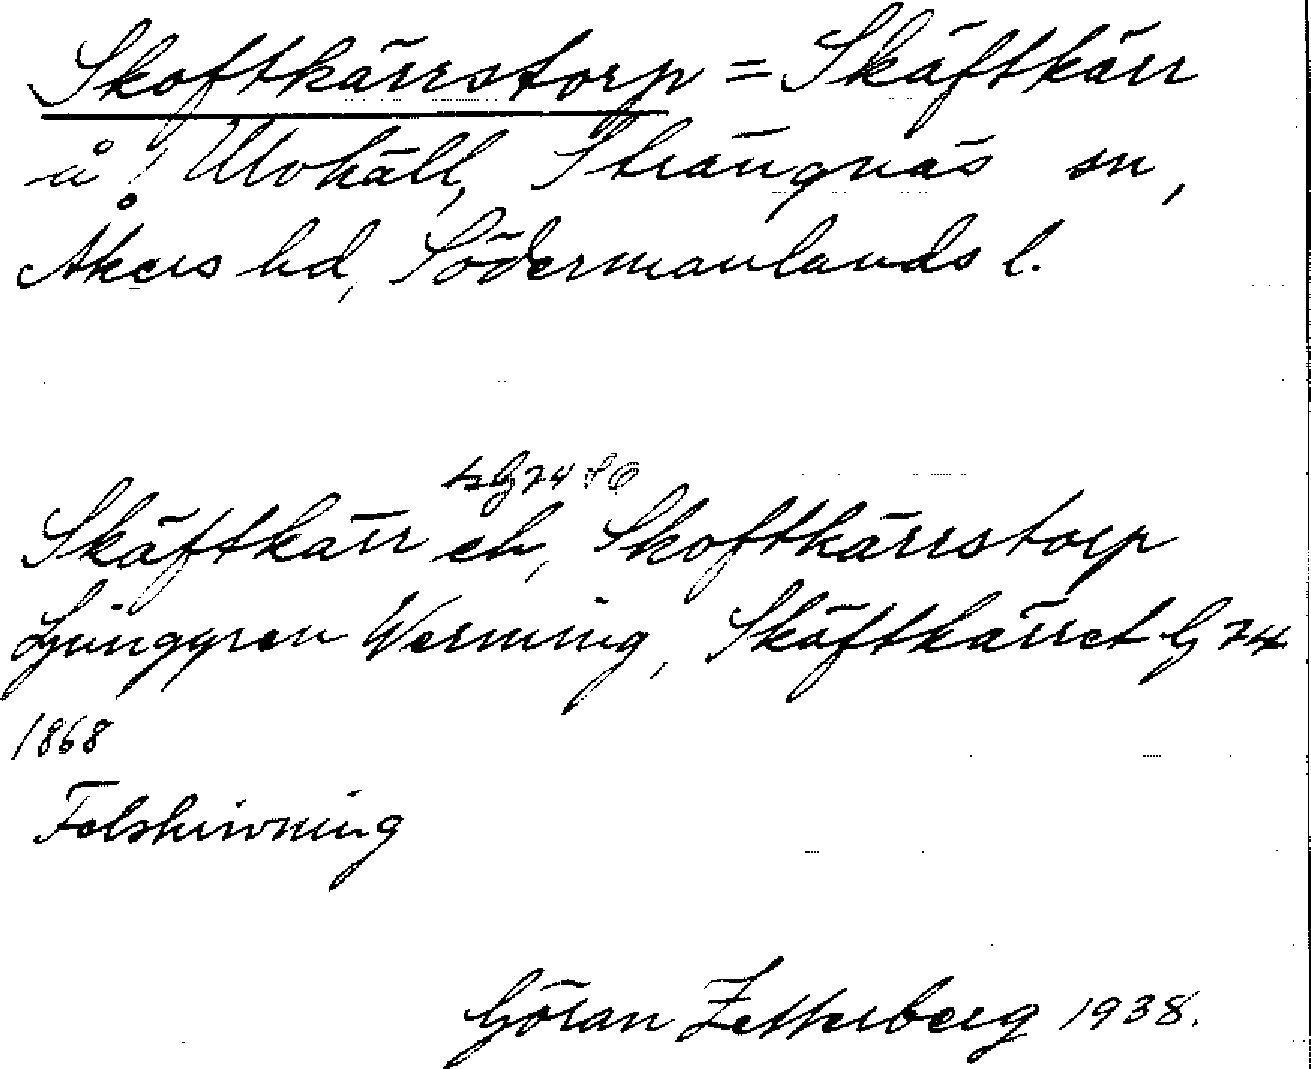 Skoftkärrstorp = Skäftkärr
å Ulvhäll, Strängnäs sn,
Åkers hd, Södermanlands l.
Skäftkärr eh, Skoftkärrstorp
Ljunggren Werming, Skäftkärret G 74
1868
Felskrivning
Göran Zetterberg 1938.